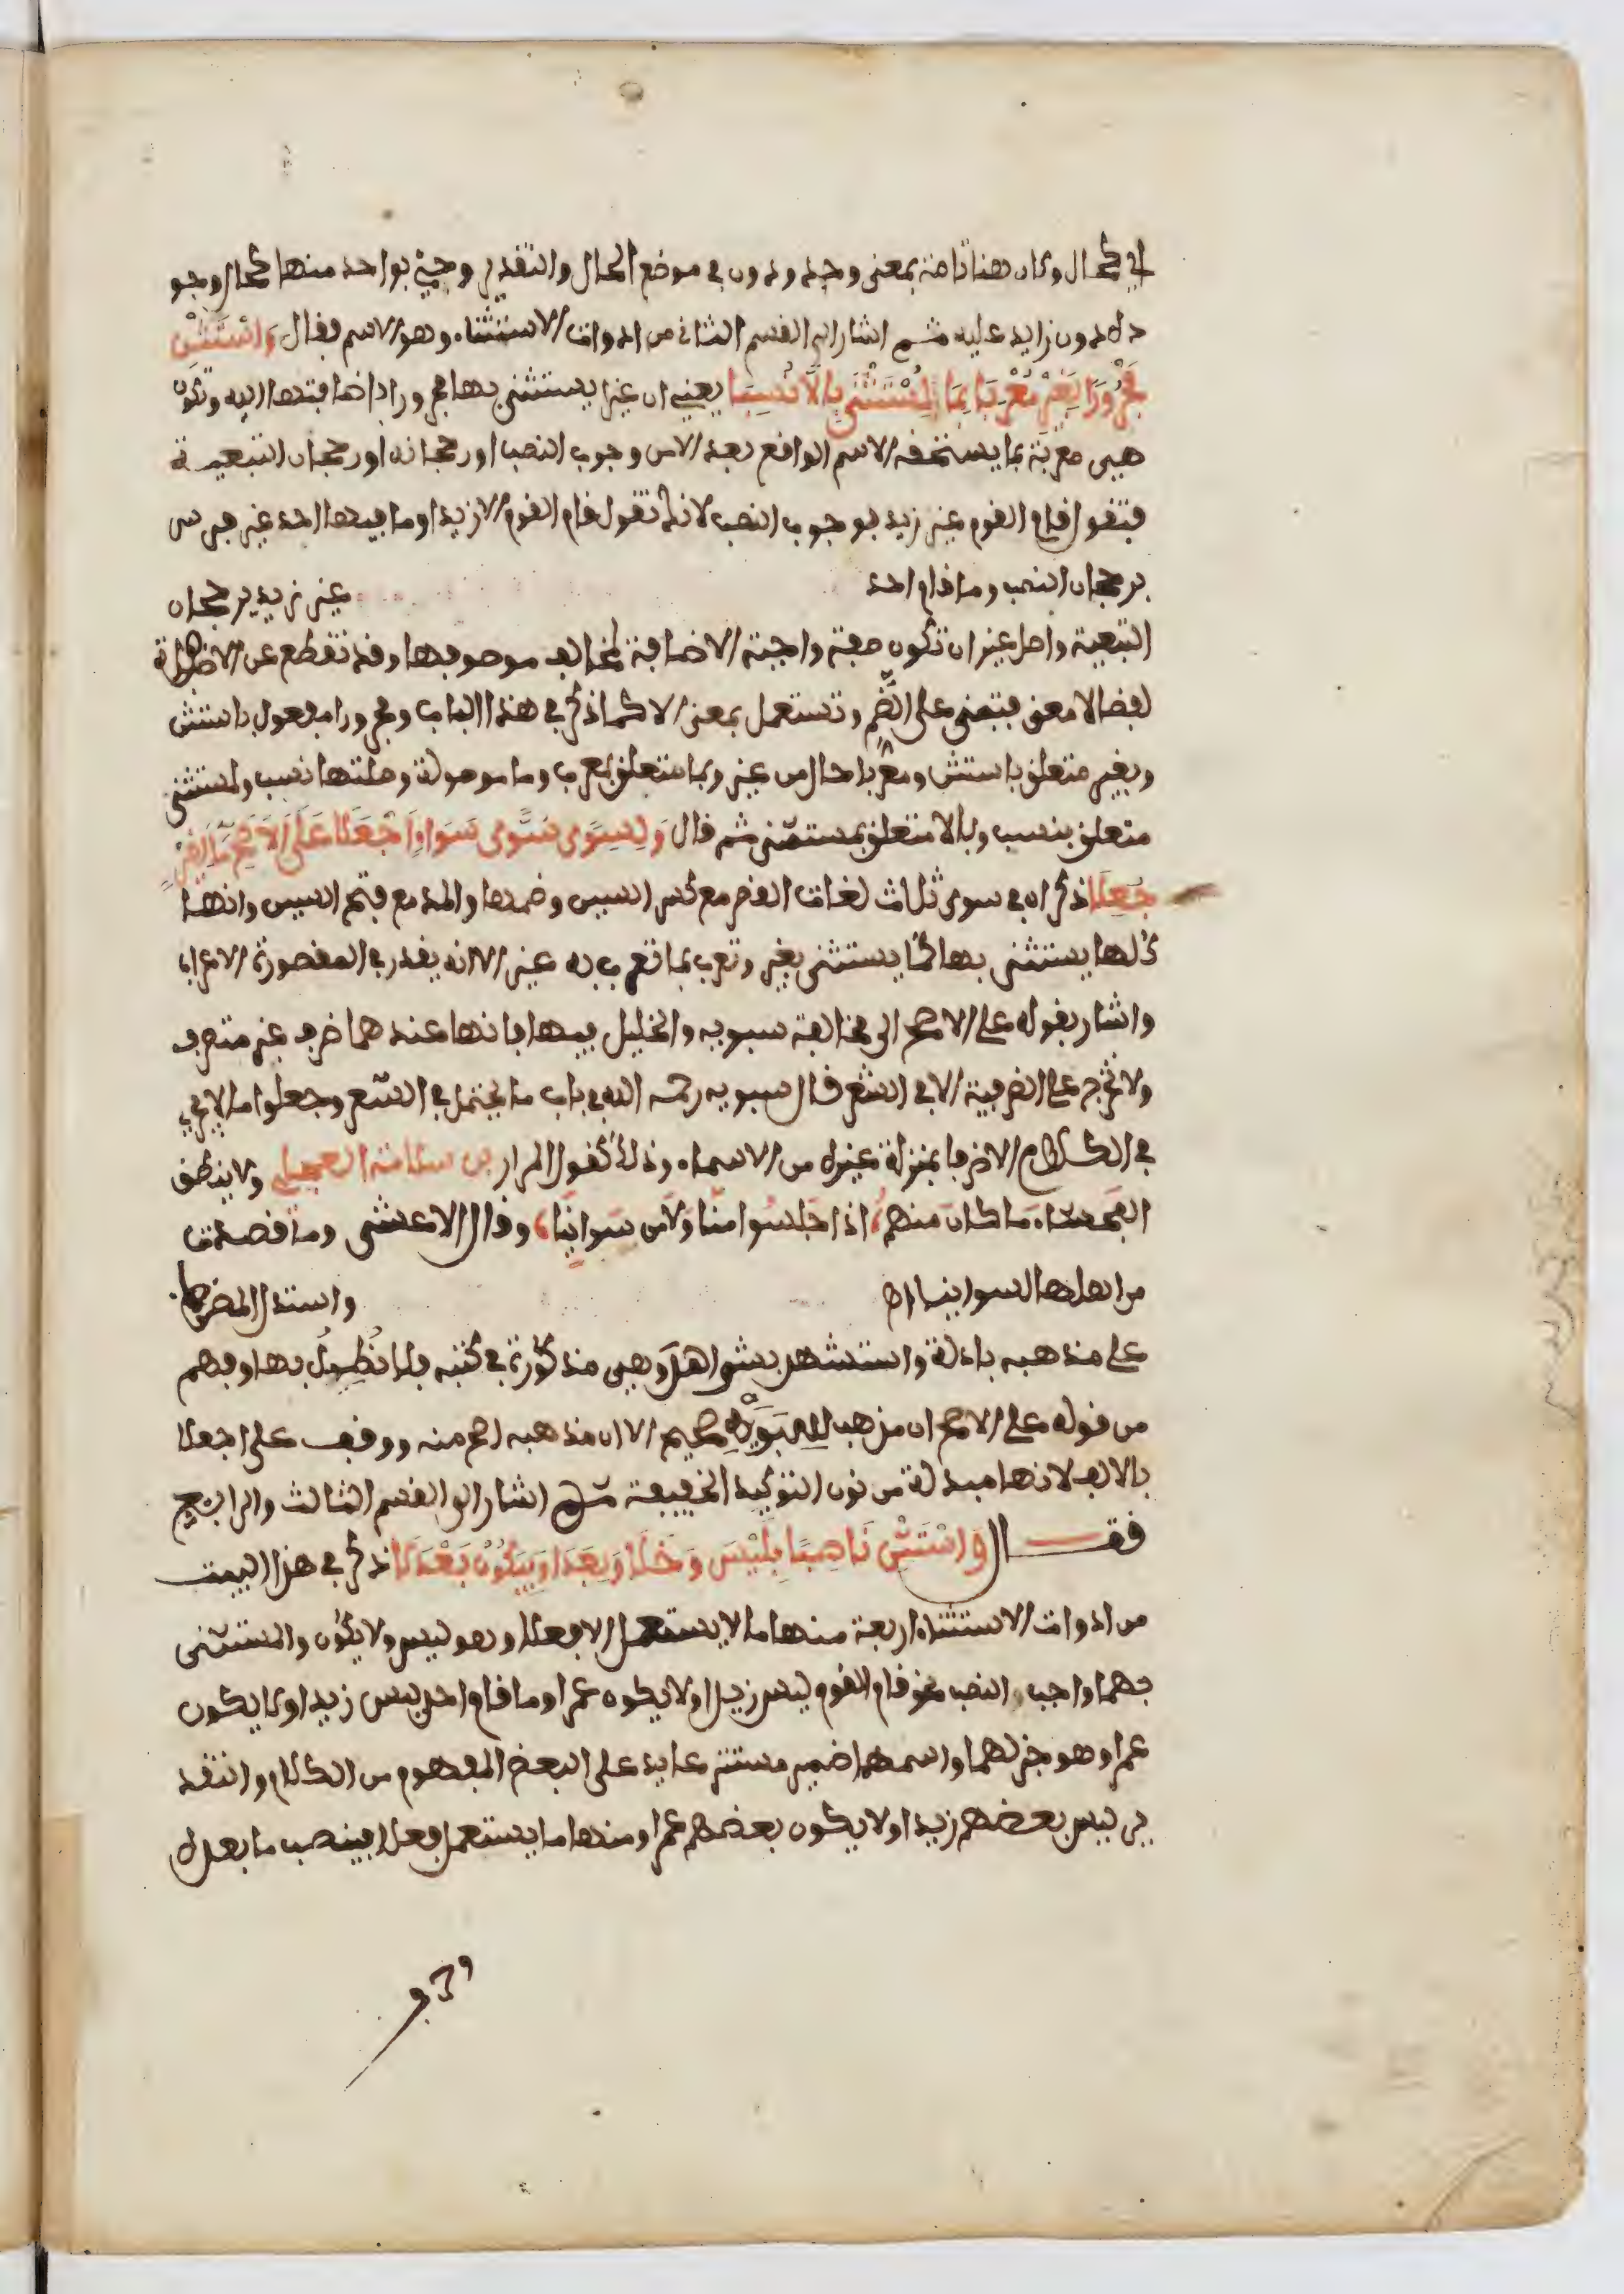 اي كحال وكان هنا تامة بمعنى وجد ودون في موضع الحال والتقدير وجئ بواحد منها كحال وجو
ده دون زايد عليه ثم اشار الى القسم الثاني من ادوات الاستثناء وهو الاسم فقال وَاسْتَثْنِ
مَجْرُورًا بِغَيْرٍ مُعْرَبَا بِمَا لِمُسْتَثْنًى بِإِلَّا نُسِبَا يعني ان غيرا يستثنى بها مجرورا باضافتها اليه وتكون
هي معربة بما يستحقه الاسم الواقع بعد الا من وجوب النصب او رجحانه او رجحان التبعية
فتقول قام القوم غير زيد بوجوب النصب لانك تقول قام القوم الا زيدا وما فيها احد غير فرس
برجحان النصب وما قام احد غير زيد برجحان
التبعية واصل غير ان تكون صفة واجبة الاضافة لمخالف موصوفها وقد تقطع عن الاضافة
لفظا لا معنى فتبنى على الضم وتستعمل بمعنى الا كما ذكر في هذا الباب ومجرورا مفعول باستثن
وبغير متعلق باستثن ومعربا حال من غير وبما متعلق بمعرب وما موصولة وصلتها نسب ولمستثنى
متعلق بنسب وبالا متعلق بمستثنى ثم قال وَلِسِوًى سُوًى سَوَاءٍ اجْعَلَا عَلَى الْأَصَحِّ مَا لِغَيْرٍ
جُعِلَا ذكر ان في سوى ثلاث لغات القصر مع كسر السين وضمها والمد مع فتح السين وانها
كلها يستثنى بها كما يستثنى بغير وتعرب بما تعرب به غير الا انه يقدر في المقصورة الاعراب
واشار بقوله على الاصح الى مخالفة سيبويه والخليل فيها فانها عندهما ظرف غير متصرف
ولا تخرج عن الظرفية الا في الشعر قال سيبويه رحمه الله في باب ما يحتمل في الشعر وجعلوا ما لا يجري
في الكلام الا ظرفا بمنزلة غيره من الاسماء وذلك كقول المرار بن سلامة العجلي ولا ينطق
الفحشاء ما كان منهم اذا جلسوا منا ولا من سوائنا وقال الاعشى وما قصدت
من اهلها لسوائنا اه واستدل الناظم
على مذهبه بادلة واستشهر بشواهد وهي مذكورة في كتبه فلا نطول بها وفهم
من قوله على الاصح ان مذهب سيبويه صحيح الا ان مذهبه اصح منه ووقف على اجعلا
بالالف لانها مبدلة من نون التوكيد الخفيفة ثم اشار الى القسم الثالث والرابع
فقــــال وَاسْتَثْنِ نَاصِبًا بِلَيْسَ وَخَلَا وَبِعَدَا وَبِيَكُونُ بَعْدَ لَا ذكر في هذا البيت
من ادوات الاستثناء اربعة منها ما لا يستعمل الا فعلا وهو ليس ولا يكون والمستثنى
بهما واجب النصب نحو قام القوم ليس زيدا ولا يكون عمرا وما قام احد ليس زيدا ولا يكون
عمرا وهو خبر لهما واسمهما ضمير مستتر عايد على البعض المفهوم من الكلام والتقد
ير ليس بعضهم زيدا ولا يكون بعضهم عمرا ومنها ما يستعمل فعلا فينصب ما بعده